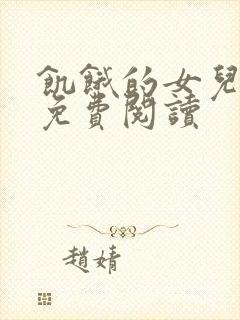 飢餓的女兒
免費閱讀
趙婧